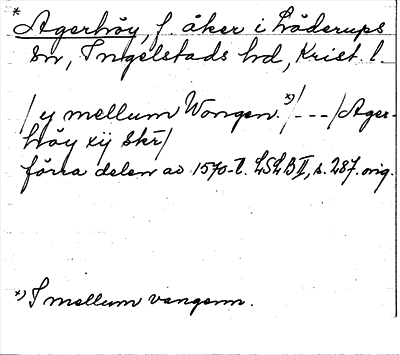 * Agerhöy, f. åker i Löderups
sn, Ingelstads hd, Krist. l.
/ y mellum Wongen. *)/ - - - /Ager-
höy xij Skr/
förra delen av 1570-t. LSLB II, s. 287. orig.
*) I mellum vangenn.